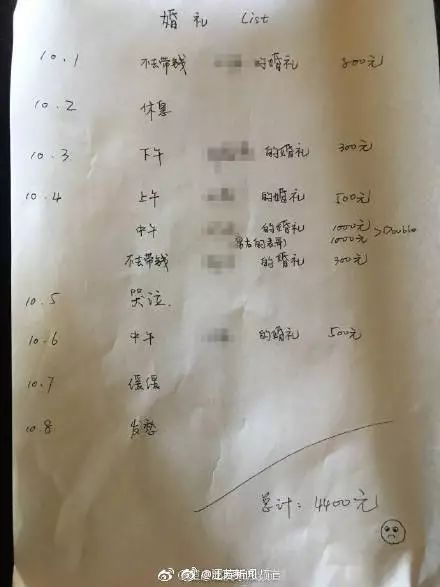 婚礼 List
10.1 不去带钱 的婚礼 800元
10.2 休息
10.3 下午 的婚礼 300元
10.4 上午 的婚礼 500元
中午 的婚礼 1000元 >Double
1000元
不去带钱 的婚礼 300元
10.5 哭泣.
10.6 中午 的婚礼 500元
10.7 缓缓
10.8 发愁
总计：4400元
@江苏新闻